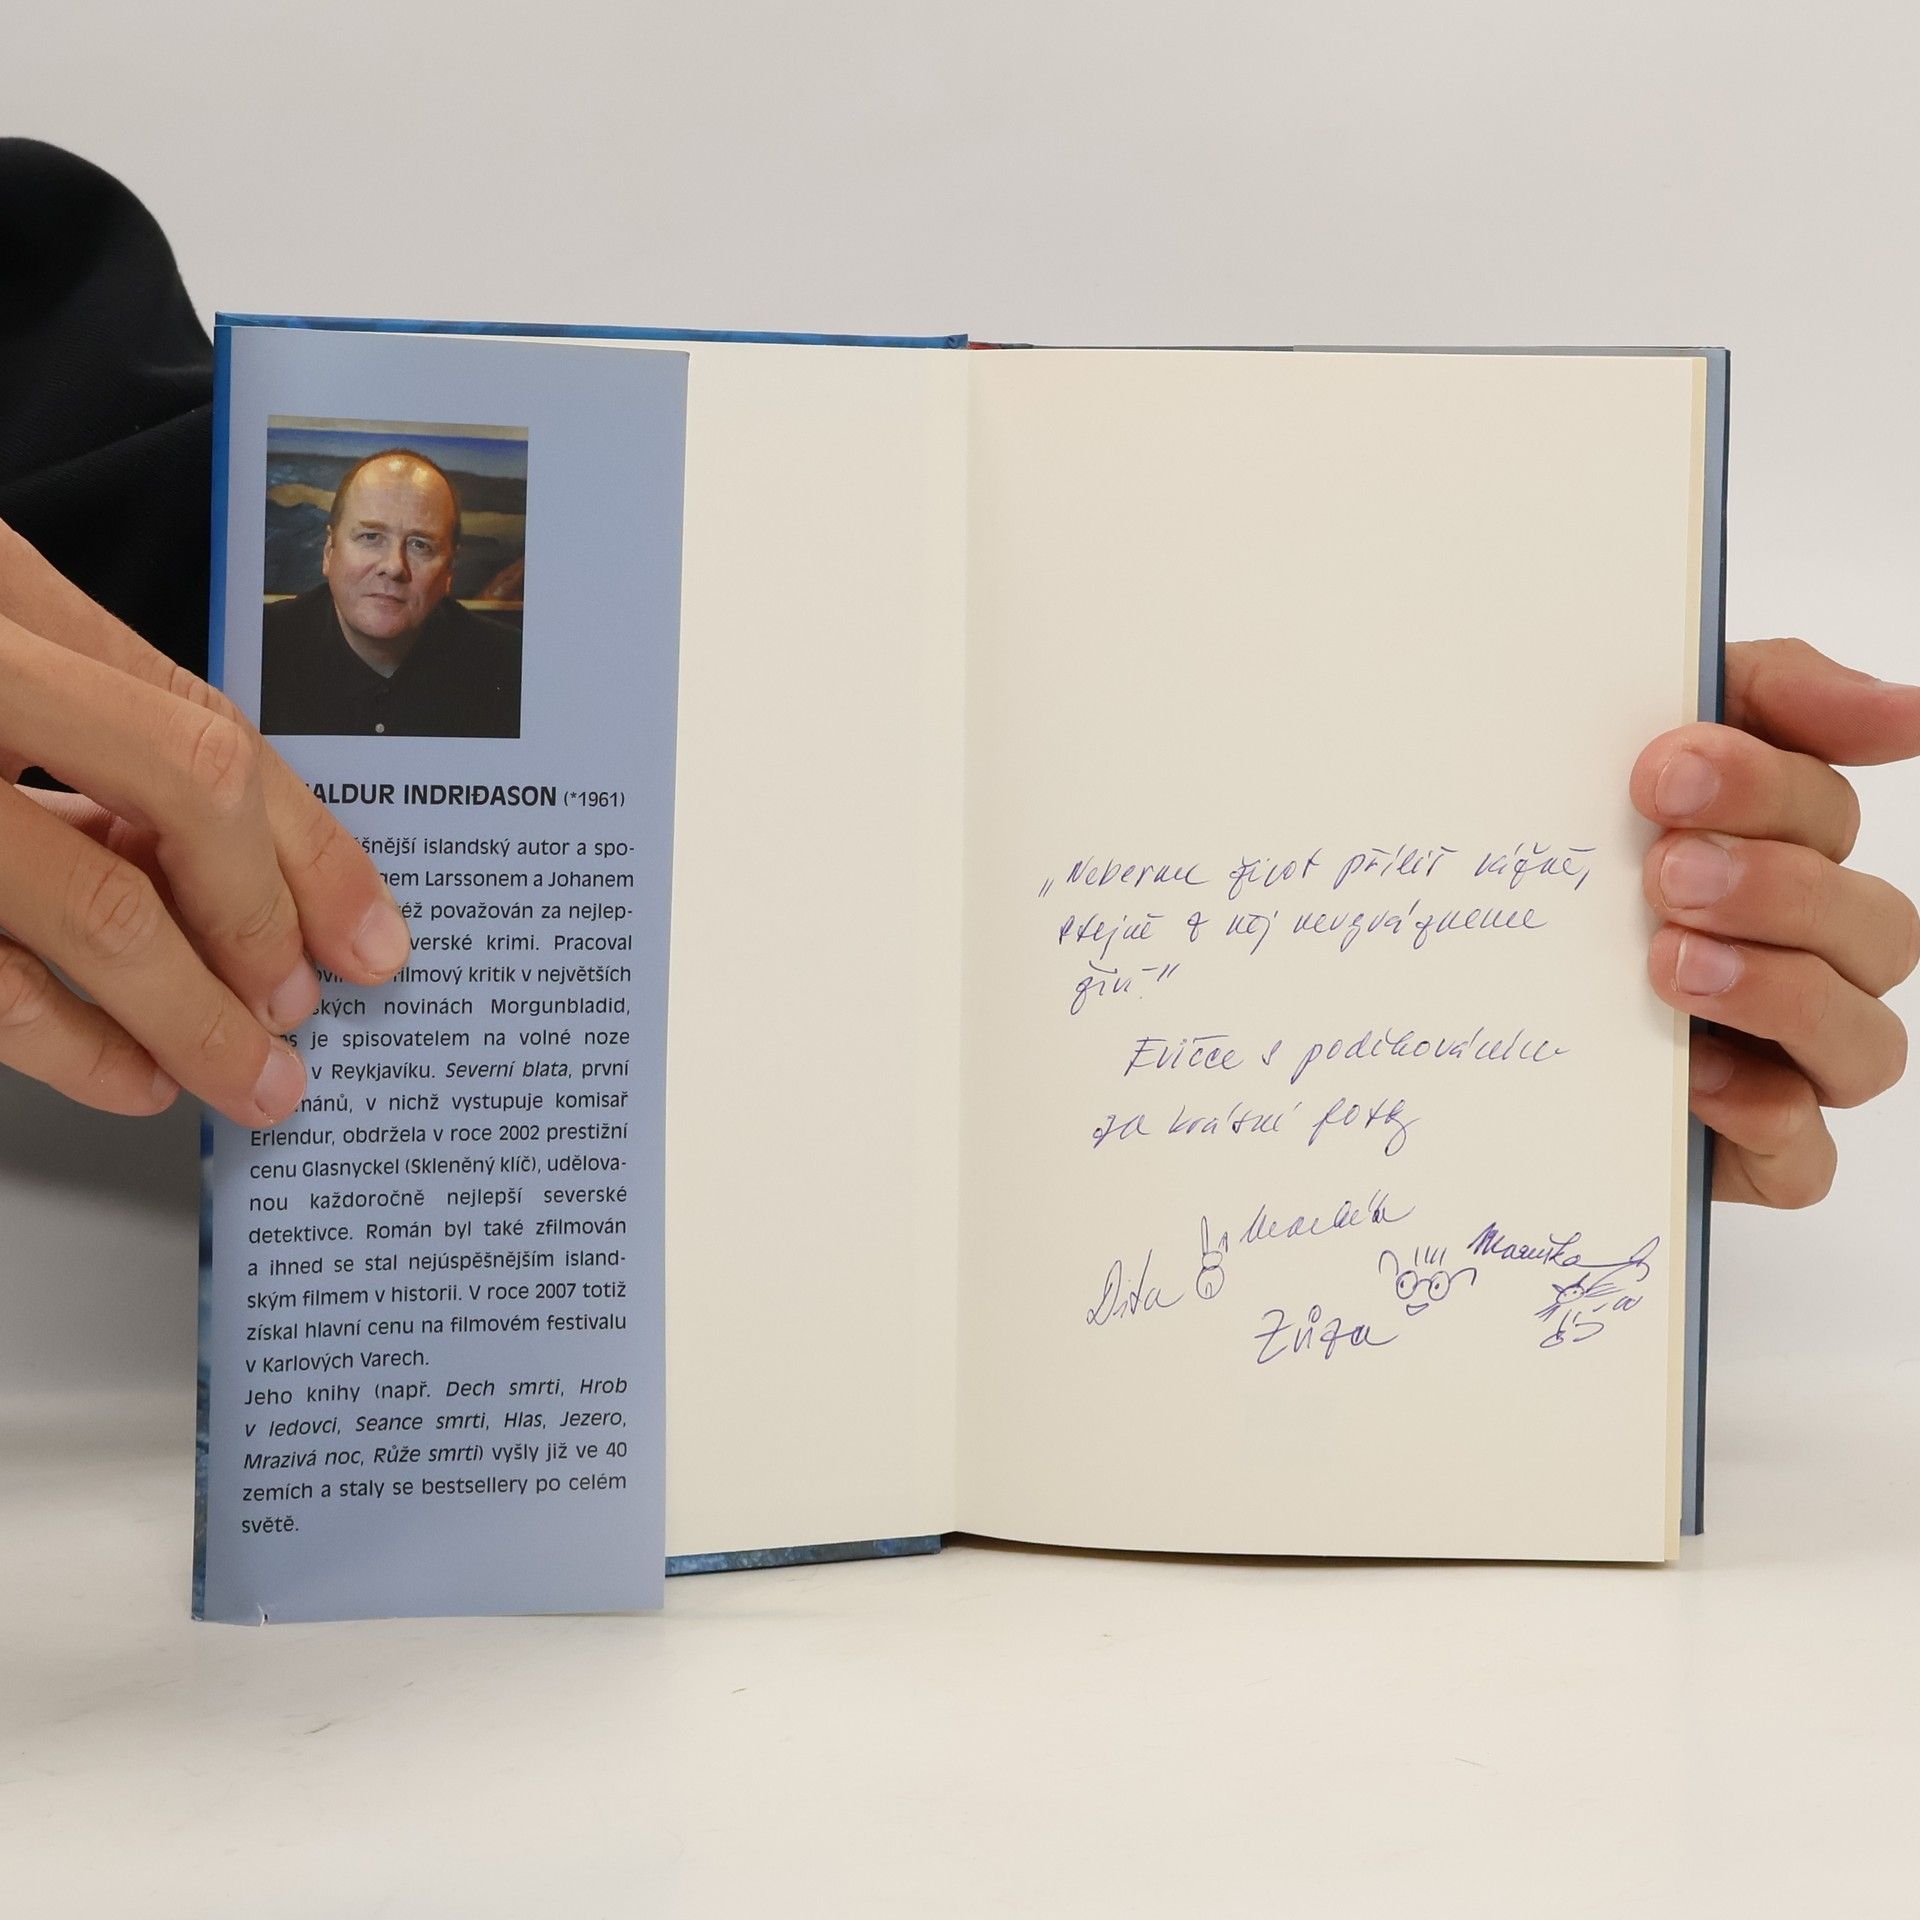 ALDUR INDRIÐASON (*1961)
šnější islandský autor a spo-
gem Larssonem a Johanem
éž považován za nejlep-
verské krimi. Pracoval
filmový kritik v největších
ských novinách Morgunbladid,
je spisovatelem na volné noze
v Reykjavíku. Severní blata, první
mánů, v nichž vystupuje komisař
Erlendur, obdržela v roce 2002 prestižní
cenu Glasnyckel (Skleněný klíč), udělova-
nou každoročně nejlepší severské
detektivce. Román byl také zfilmován
a ihned se stal nejúspěšnějším island-
ským filmem v historii. V roce 2007 totiž
získal hlavní cenu na filmovém festivalu
v Karlových Varech.
Jeho knihy (např. Dech smrti, Hrob
v ledovci, Seance smrti, Hlas, Jezero,
Mrazivá noc, Růže smrti) vyšly již ve 40
zemích a staly se bestsellery po celém
světě.
„Neberme život příliš vážně,
stejně z něj nevyvázneme
živí."
Evičce s poděkováním
za krásné fotky
Dita
Zůza